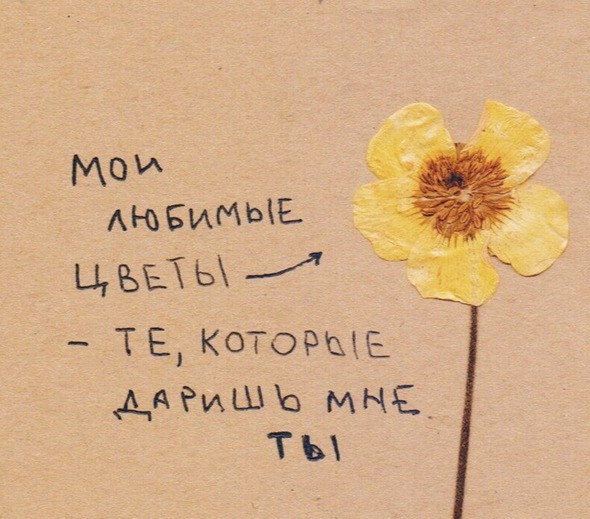 мои
любимые
цветы
- те, которые
даришь мне
ты